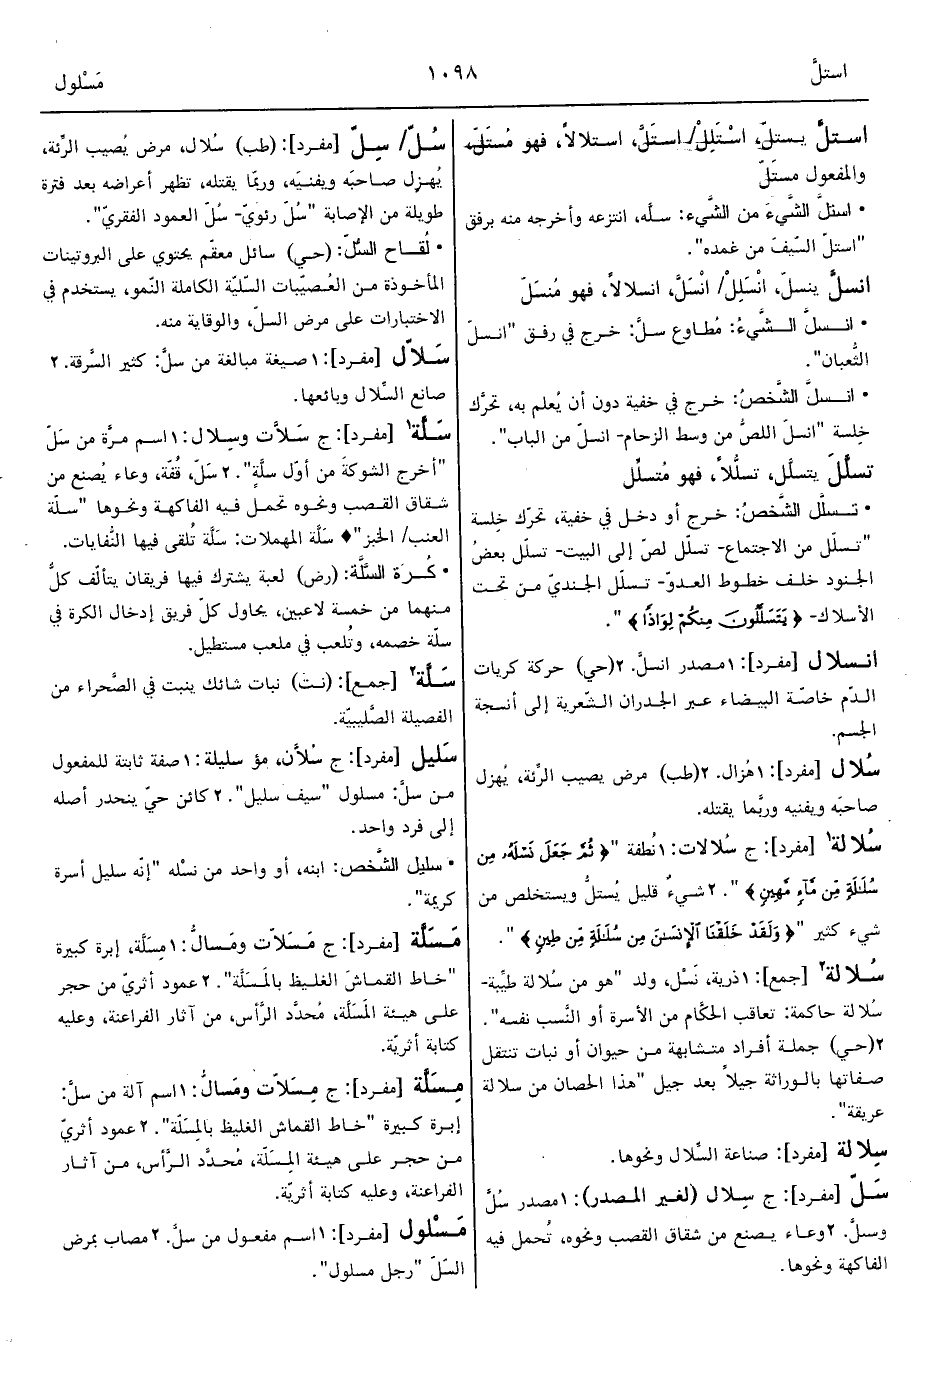 استلَّ
١٠٩٨
مَسْلول
استلَّ يستلّ، اسْتَلِلْ/استَلَّ، استلالاً، فهو مُسْتَلّ،
والمفعول مستَلّ
• استلَّ الشَّيءَ من الشَّيء: سلَّه، انتزعه وأخرجه منه برفق
"استلّ السَّيفَ من غمده".
انسلَّ ينسلّ، انْسَلِلْ/ انْسَلَّ، انسلالاً، فهو مُنسَلّ
• انسلَّ الشَّيءُ: مُطاوع سلَّ: خرج في رفق "انسلّ
الثُّعبان".
• انسلَّ الشَّخصُ: خرج في خفية دون أن يُعلم به، تحرَّك
خِلسة "انسلّ اللصُّ من وسط الزحام- انسلّ من الباب".
تسلَّلَ يتسلَّل، تسلُّلاً، فهو مُتسلِّل
• تسلَّل الشَّخصُ: خرج أو دخل في خفية، تحرّك خِلسة
"تسلّل من الاجتماع- تسلّل لصّ إلى البيت- تسلّل بعضُ
الجنود خلف خطوط العدوّ- تسلّل الجنديّ من تحت
الأسلاك- ﴿ يَتَسَلَّلُونَ مِنكُمْ لِوَاذًا ﴾ ".
انسلال [مفرد]: ١مصدر انسلَّ. ٢(حي) حركة كريات
الدّم خاصّة البيضاء عبر الجدران الشّعرية إلى أنسجة
الجسم.
سُلال [مفرد]: ١هُزال. ٢(طب) مرض يصيب الرِّئة، يُهزل
صاحبَه ويفنيه وربَّما يقتله.
سُلالة١ [مفرد]: ج سُلالات: ١نُطفة "﴿ ثُمَّ جَعَلَ نَسْلَهُۥ مِن
سُلَٰلَةٍ مِّن مَّآءٍ مَّهِينٍ ﴾ ". ٢شيءٌ قليل يُستلُّ ويستخلص من
شيء كثير "﴿ وَلَقَدْ خَلَقْنَا ٱلْإِنسَٰنَ مِن سُلَٰلَةٍ مِّن طِينٍ ﴾ ".
سُلالة٢ [جمع]: ١ذرية، نَسْل، ولد "هو من سُلالة طيِّبة-
سُلالة حاكمة: تعاقب الحكَّام من الأسرة أو النَّسب نفسه".
٢(حي) جملة أفراد متشابهة من حيوان أو نبات تنتقل
صفاتها بالوراثة جيلاً بعد جيل "هذا الحصان من سلالة
عريقة".
سِلالة [مفرد]: صناعة السِّلال ونحوها.
سَلّ [مفرد]: ج سِلال (لغير المصدر): ١مصدر سُلَّ
وسلَّ. ٢وعاء يصنع من شقاق القصب ونحوه، تُحمل فيه
الفاكهة ونحوها.
سُلّ/ سِلّ [مفرد]: (طب) سُلال، مرض يُصيب الرِّئة،
يُهزل صاحبَه ويفنيَه، وربّما يقتله، تظهر أعراضه بعد فترة
طويلة من الإصابة "سُلّ رئويّ- سُلّ العمود الفقريّ".
• لُقاح السُّلّ: (حي) سائل معقّم يحتوي على البروتينات
المأخوذة من العُصيّيات السّليّة الكاملة النّمو، يستخدم في
الاختبارات على مرض السلّ، والوقاية منه.
سَلاّل [مفرد]: ١صيغة مبالغة من سلَّ: كثير السَّرقة. ٢
صانع السِّلال وبائعها.
سَلَّة١ [مفرد]: ج سَلاَّت وسِلال: ١اسم مرَّة من سَلَّ
"أخرج الشوكةَ من أوّل سلَّةٍ". ٢سَلّ، قُفّة، وعاء يُصنع من
شقاق القصب ونحوه تحمل فيه الفاكهة ونحوها "سلّة
العنب/ الخبز"♦ سَلَّة المهملات: سَلَّة تُلقى فيها النُّفايات.
• كُرَة السَّلَّة: (رض) لعبة يشترك فيها فريقان يتألّف كلٌّ
منهما من خمسة لاعبين، يحاول كلّ فريق إدخال الكرة في
سلّة خصمه، وتُلعب في ملعب مستطيل.
سَلَّة٢ [جمع]: (نت) نبات شائك ينبت في الصَّحراء من
الفصيلة الصَّليبيَّة.
سَليل [مفرد]: ج سُلاَّن، مؤ سليلة: ١صفة ثابتة للمفعول
من سلَّ: مسلول "سيف سليل". ٢كائن حيّ ينحدر أصله
إلى فرد واحد.
• سليل الشَّخص: ابنه، أو واحد من نسْله "إنّه سليل أسرة
كريمة".
مَسَلَّة [مفرد]: ج مَسَلاَّت ومَسالُّ: ١مِسَلَّة، إبرة كبيرة
"خاط القماشَ الغليظ بالمَسَلّة". ٢عمود أثريّ من حجر
على هيئة المَسَلَّة، مُحدَّد الرَّأس، من آثار الفراعنة، وعليه
كتابة أثريّة.
مِسَلَّة [مفرد]: ج مِسَلاَّت ومَسالُّ: ١اسم آلة من سلَّ:
إبرة كبيرة "خاط القماش الغليظ بالمِسَلّة". ٢عمود أثريّ
من حجر على هيئة المِسَلَّة، مُحدَّد الرَّأس، من آثار
الفراعنة، وعليه كتابة أثريّة.
مَسْلول [مفرد]: ١اسم مفعول من سلَّ. ٢مصاب بمرض
السّلّ "رجل مسلول".